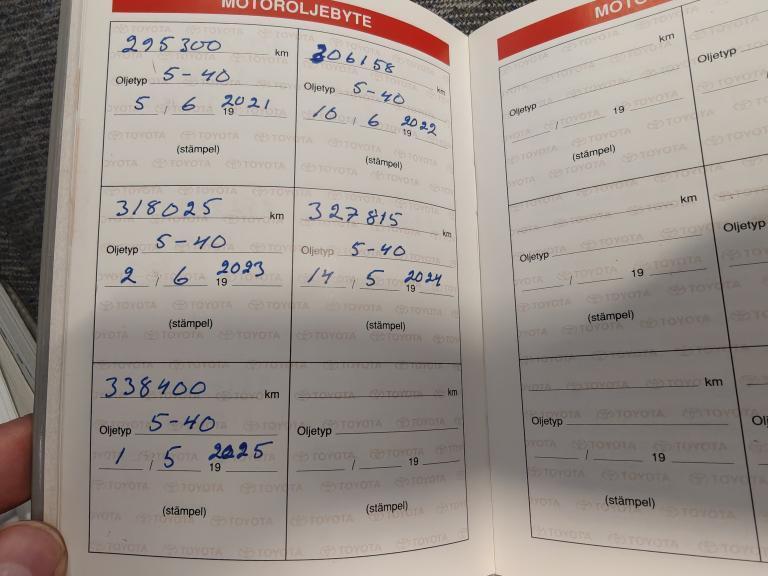 MOTOROLJEBYTE
295300 km
Oljetyp 5-40
5 / 6 19 2021
(stämpel)
306158 km
Oljetyp 5-40
10 / 6 19 2022
(stämpel)
318025 km
Oljetyp 5-40
2 / 6 19 2023
(stämpel)
327815 km
Oljetyp 5-40
14 / 5 19 2024
(stämpel)
338400 km
Oljetyp 5-40
1 / 5 19 2025
(stämpel)
km
Oljetyp
/ 19
(stämpel)
MOTO
km
Oljetyp
/ 19
(stämpel)
Oljetyp
km
Oljetyp
/ 19
(stämpel)
Oljetyp
km
Oljetyp
/ 19
(stämpel)
Olj